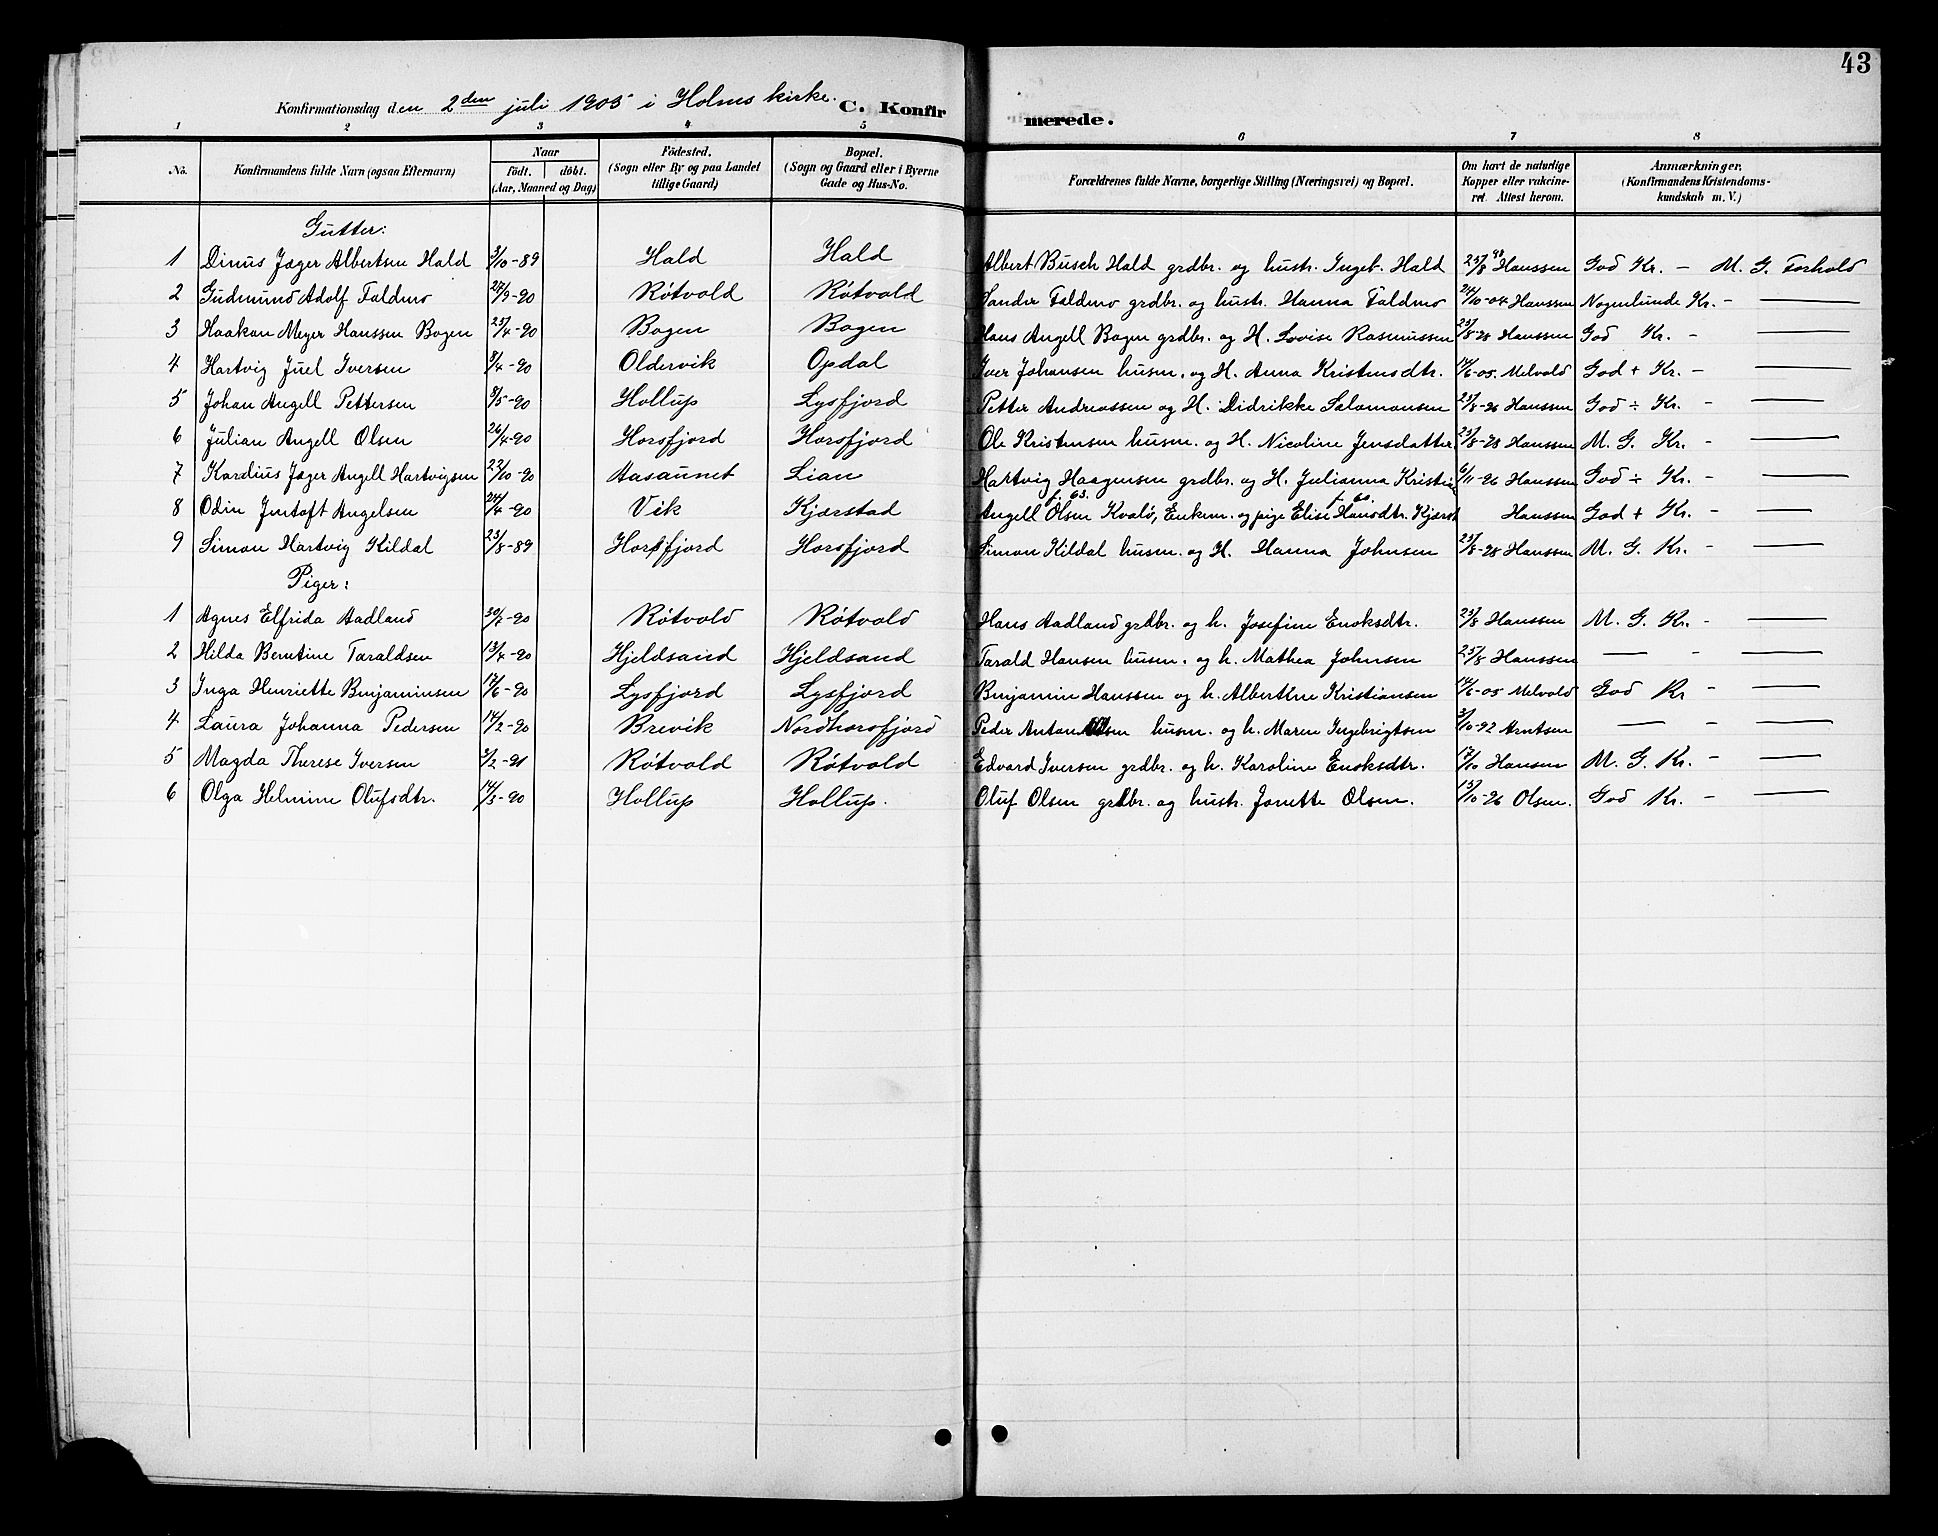 43
Konfirmationsdag den 2den juli 1905 i Holms kirke. C. Konfirmerede.
1 2 3 4 5 6 7 8
No. Konfirmandens fulde Navn (ogsaa Efternavn) Naar Födt. döbt. (Aar, Maaned og Dag) Födested. (Sogn eller By og paa Landet tillige Gaard) Bopæl. (Sogn og Gaard eller i Byerne Gade og Hus-No. Forældrenes fulde Navne, borgerlige Stilling (Næringsvei) og Bopæl. Om havt de naturlige Kopper eller vakcineret. Attest herom. Anmærkninger. (Konfirmandens Kristendomskundskab m. V.)
Gutter:
1 Dinus Jæger Albertsen Hald 3/10-89 Hald Hald Albert Busch Hald grdbr. og hustr. Ingeb. Hald Hanssen God Kr. - M. G. Forhold
2 Gudmund Adolf Faldmo 27/9-90 Rötvold Rötvold Sander Faldmo grdbr. og hustr. Hanna Faldmo 24/10-04 Hanssen Nogenlunde Kr. - —
3 Haakan Meyer Hanssen Bogen 25/4-90 Bogen Bogen Hans Angell Bogen grdbr. og H. Lovise Rasmussen 23/8-98 Hanssen God Kr. - —
4 Hartvig Juel Iversen 3/4-90 Oldervik Opdal Iver Johansen husm. og H. Anna Kristensdtr. 14/6-05. Melvold God + Kr. - —
5 Johan Angell Pettersen 9/5-90 Hollup Lysfjord Petter Andreassen og H. Didrikke Salamonsen 23/8-96 Hanssen God ÷ Kr. - —
6 Julian Angell Olsen 26/4-90 Horsfjord Horsfjord Ole Kristensen husm. og H. Nicoline Jensdatter 23/8-98 Hanssen M. G. Kr. - —
7 Karelius Jæger Angell Hartvigsen 22/10-90 Aasaunet Lian Hartvig Haagensen grdbr. og H. Julianna 6/11-96 Hanssen God ÷ Kr. - —
8 Odin Jentoft Angelsen 24/4-90 Vik Kjærstad Angell Olsen f. 63. Kvalö, Enkem. og pige Elise Hansdtr. f. 60. Hanssen God + Kr. - —
9 Simon Hartvig Kildal 23/8-89 Horsfjord Horsfjord Simon Kildal husm. og H. Hanna Johnsen 23/8-98 Hanssen M. G. Kr. - —
Piger:
1 Agnes Elfrida Aadland 30/7-90 Rötvold Rötvold Hans Aadland grdbr. og h. Josefine Enoksdtr. 23/8 Hanssen M. G. Kr. - —
2 Hilda Berntine Taraldsen 13/4-90 Hjeldsand Hjeldsand Tarald Hansen husm. og h. Mathea Johnsen 23/8 Hanssen — - —
3 Inga Henriette Benjaminsen 17/6-90 Lysfjord Lysfjord Benjamin Hanssen og h. Albertine Kristiansen 14/6-05 Melvold God Kr - —
4 Laura Johanna Pedersen 14/2-90 Brevik Nordhorsfjord Peder Anton Olsen husm. og h. Maren Ingebrigtsen 3/10-92 Arntsen — - —
5 Magda Therese Iversen 3/2-91 Rötvold Rötvold Edvard Iversen grdbr. og h. Karoline Enoksdtr. 17/10 Hansen M. G. Kr. - —
6 Olga Helmine Olufsdtr. 14/3-90 Hollup Hollup. Oluf Olsen grdbr. og hustr. Jonette Olsen. 13/10-96 Olsen. God Kr. - —